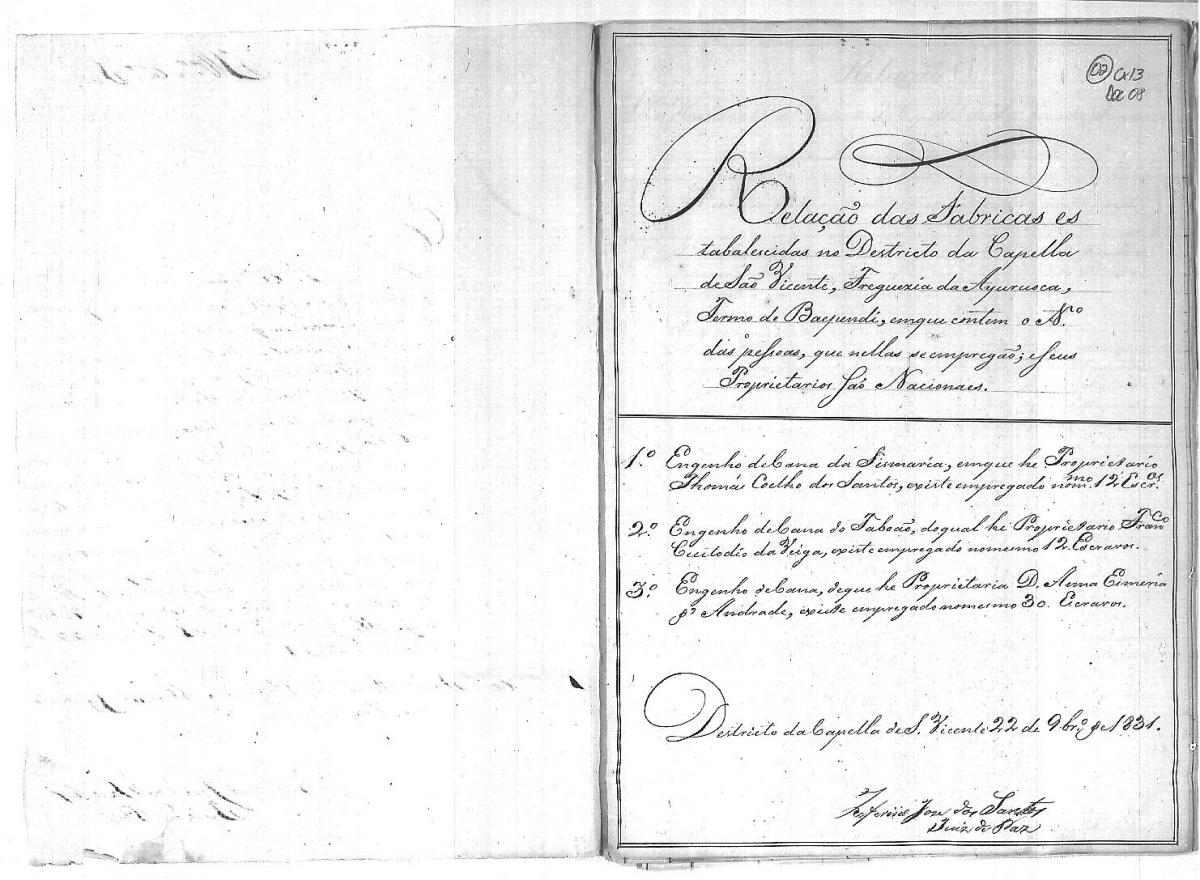 02 Cx13
Doc 08
Relação das Fabricas es
tabalescidas no Destricto da Capella
de São Vicente, Freguezia da Ayuruoca,
Termo de Baependi, emque contem o N.º
das pessoas, que nellas se empregão; e seus
Proprietarios são Nacionaes.
1.º Engenho de Cana da Sismaria, emque he Proprietario
Thomás Coelho dos Santos, existe empregado nom.mo 12 Escr.os
2.º Engenho de Cana do Taboão, do qual he Proprietario Fran.co
Custodio da Veiga, existe empregado nomesmo 12 Escravos.
3.º Engenho de Cana, de que he Proprietaria D. Anna
Andrade, existe empregado nomesmo 30 Escravos.
Destricto da Capella de S. Vicente 22 de 9br.º de 1831.
Jose dos Santos
Juiz de Paz